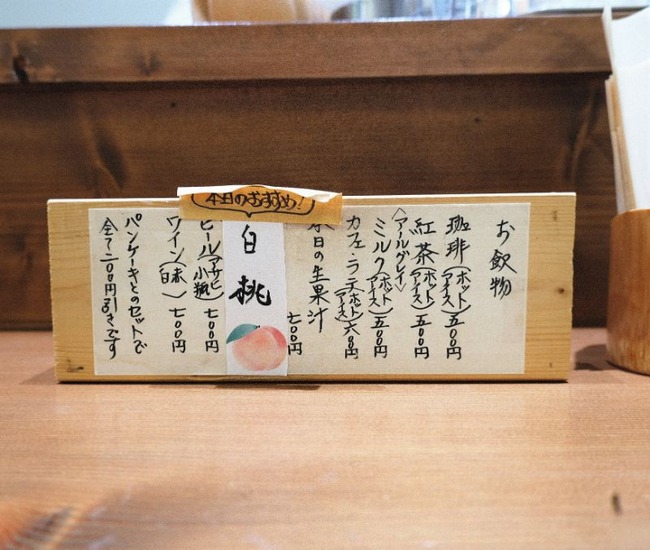 お飲物
珈琲(ホット アイス)五〇〇円
紅茶(ホット アイス)五〇〇円
〈アールグレイ〉
ミルク(ホット アイス)五〇〇円
カフェ・ラテ(ホット アイス)六〇〇円
本日の生果汁
七〇〇円
本日のおすすめ!
白桃
ビール(アサヒ 小瓶)七〇〇円
ワイン(赤 白)七〇〇円
パンケーキとのセットで
全て二〇〇円引きです